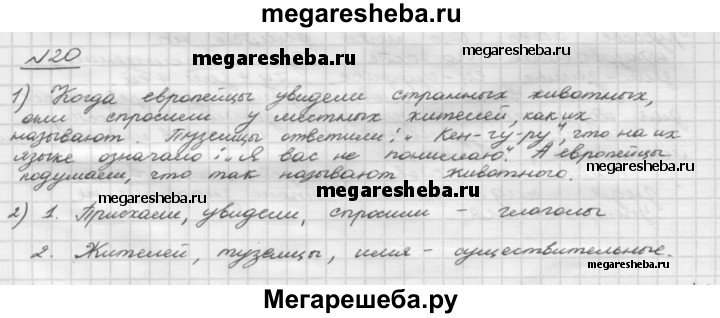 megaresheba.ru
№20
megaresheba.ru
megaresheba.ru
1) Когда европейцы увидели странных животных,
они спросили у местных жителей, как их
называют. Туземцы ответили: „Кен-гу-ру", что на их
языке означало: „Я вас не понимаю". А европейцы
подумали, что так называют животного.
megaresheba.ru
megaresheba.ru
2) 1. Приехали, увидели, спросили - глаголы
megaresheba.ru
2. Жителей, туземцы, имя - существительные.
megaresheba.ru
Мегарешеба.ру